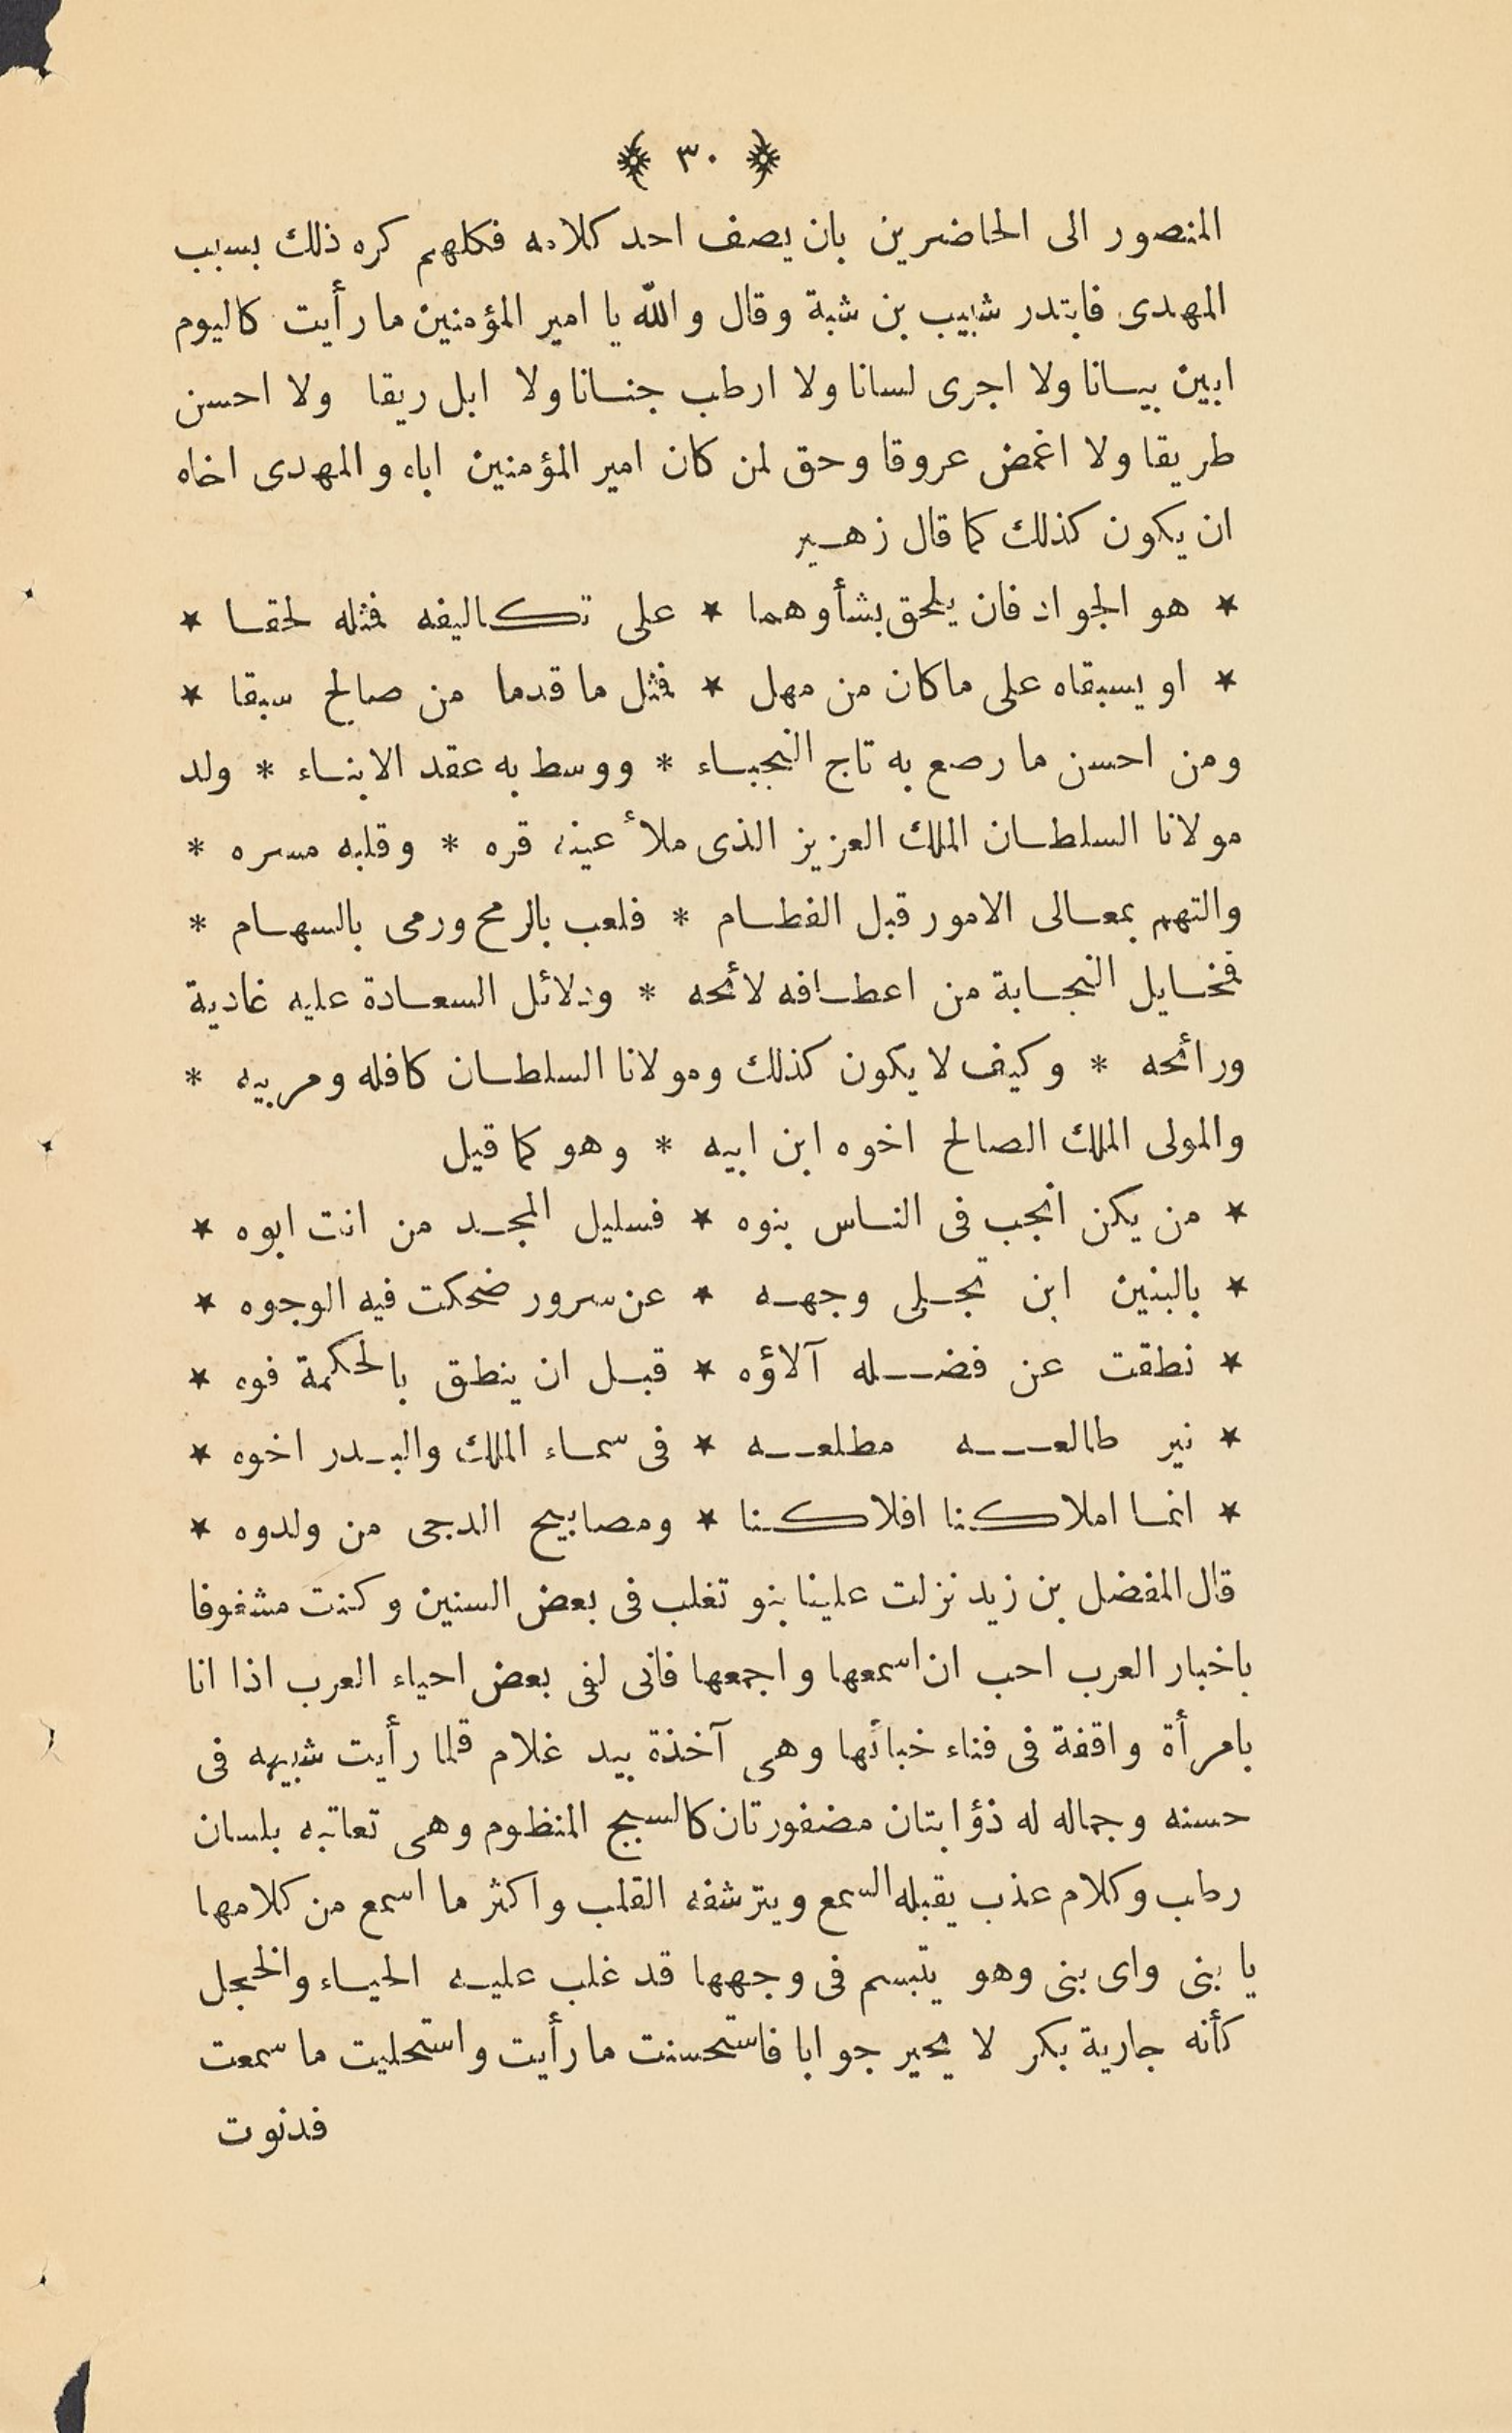 ﴿ ٣٠ ﴾
المنصور الى الحاضرين بان يصف احد كلامه فكلهم كره ذلك بسبب
المهدى فابتدر شبيب بن شبة وقال والله يا امير المؤمنين ما رأيت كاليوم
ابين بيانا ولا اجرى لسانا ولا ارطب جنانا ولا ابل ريقا ولا احسن
طريقا ولا اغمض عروقا وحق لمن كان امير المؤمنين اباه والمهدى اخاه
ان يكون كذلك كما قال زهير
★ هو الجواد فان يلحق بشأوهما ★ على تكاليفه فمثله لحقا ★
★ او يسبقاه على ماكان من مهل ★ فمثل ما قدما من صالح سبقا ★
ومن احسن ما رصع به تاج النجباء * ووسط به عقد الابناء * ولد
مولانا السلطان الملك العزيز الذى ملأ عينه قره * وقلبه مسره *
والتهم بمعالى الامور قبل الفطام * فلعب بالرمح ورمى بالسهام *
فمخايل النجابة من اعطافه لائحه * ودلائل السعادة عليه غادية
ورائحه * وكيف لا يكون كذلك ومولانا السلطان كافله ومربيه *
والمولى الملك الصالح اخوه ابن ابيه * وهو كما قيل
★ من يكن انجب فى الناس بنوه ★ فسليل المجد من انت ابوه ★
★ بالبنين ابن تجلى وجهه ★ عن سرور ضحكت فيه الوجوه ★
★ نطقت عن فضله آلاؤه ★ قبل ان ينطق بالحكمة فوه ★
★ نير طالعه مطلعه ★ فى سماء الملك والبدر اخوه ★
★ انما املاكنا افلاكنا ★ ومصابيح الدجى من ولدوه ★
قال المفضل بن زيد نزلت علينا بنو تغلب فى بعض السنين وكنت مشغوفا
باخبار العرب احب ان اسمعها واجمعها فانى لفى بعض احياء العرب اذا انا
بامرأة واقفة فى فناء خبائها وهى آخذة بيد غلام قلما رأيت شبيهه فى
حسنه وجماله له ذؤابتان مضفورتان كالسبج المنظوم وهى تعاتبه بلسان
رطب وكلام عذب يقبله السمع ويترشفه القلب واكثر ما اسمع من كلامها
يا بنى واى بنى وهو يتبسم فى وجهها قد غلب عليه الحياء والخجل
كأنه جارية بكر لا يحير جوابا فاستحسنت ما رأيت واستحليت ما سمعت
فدنوت